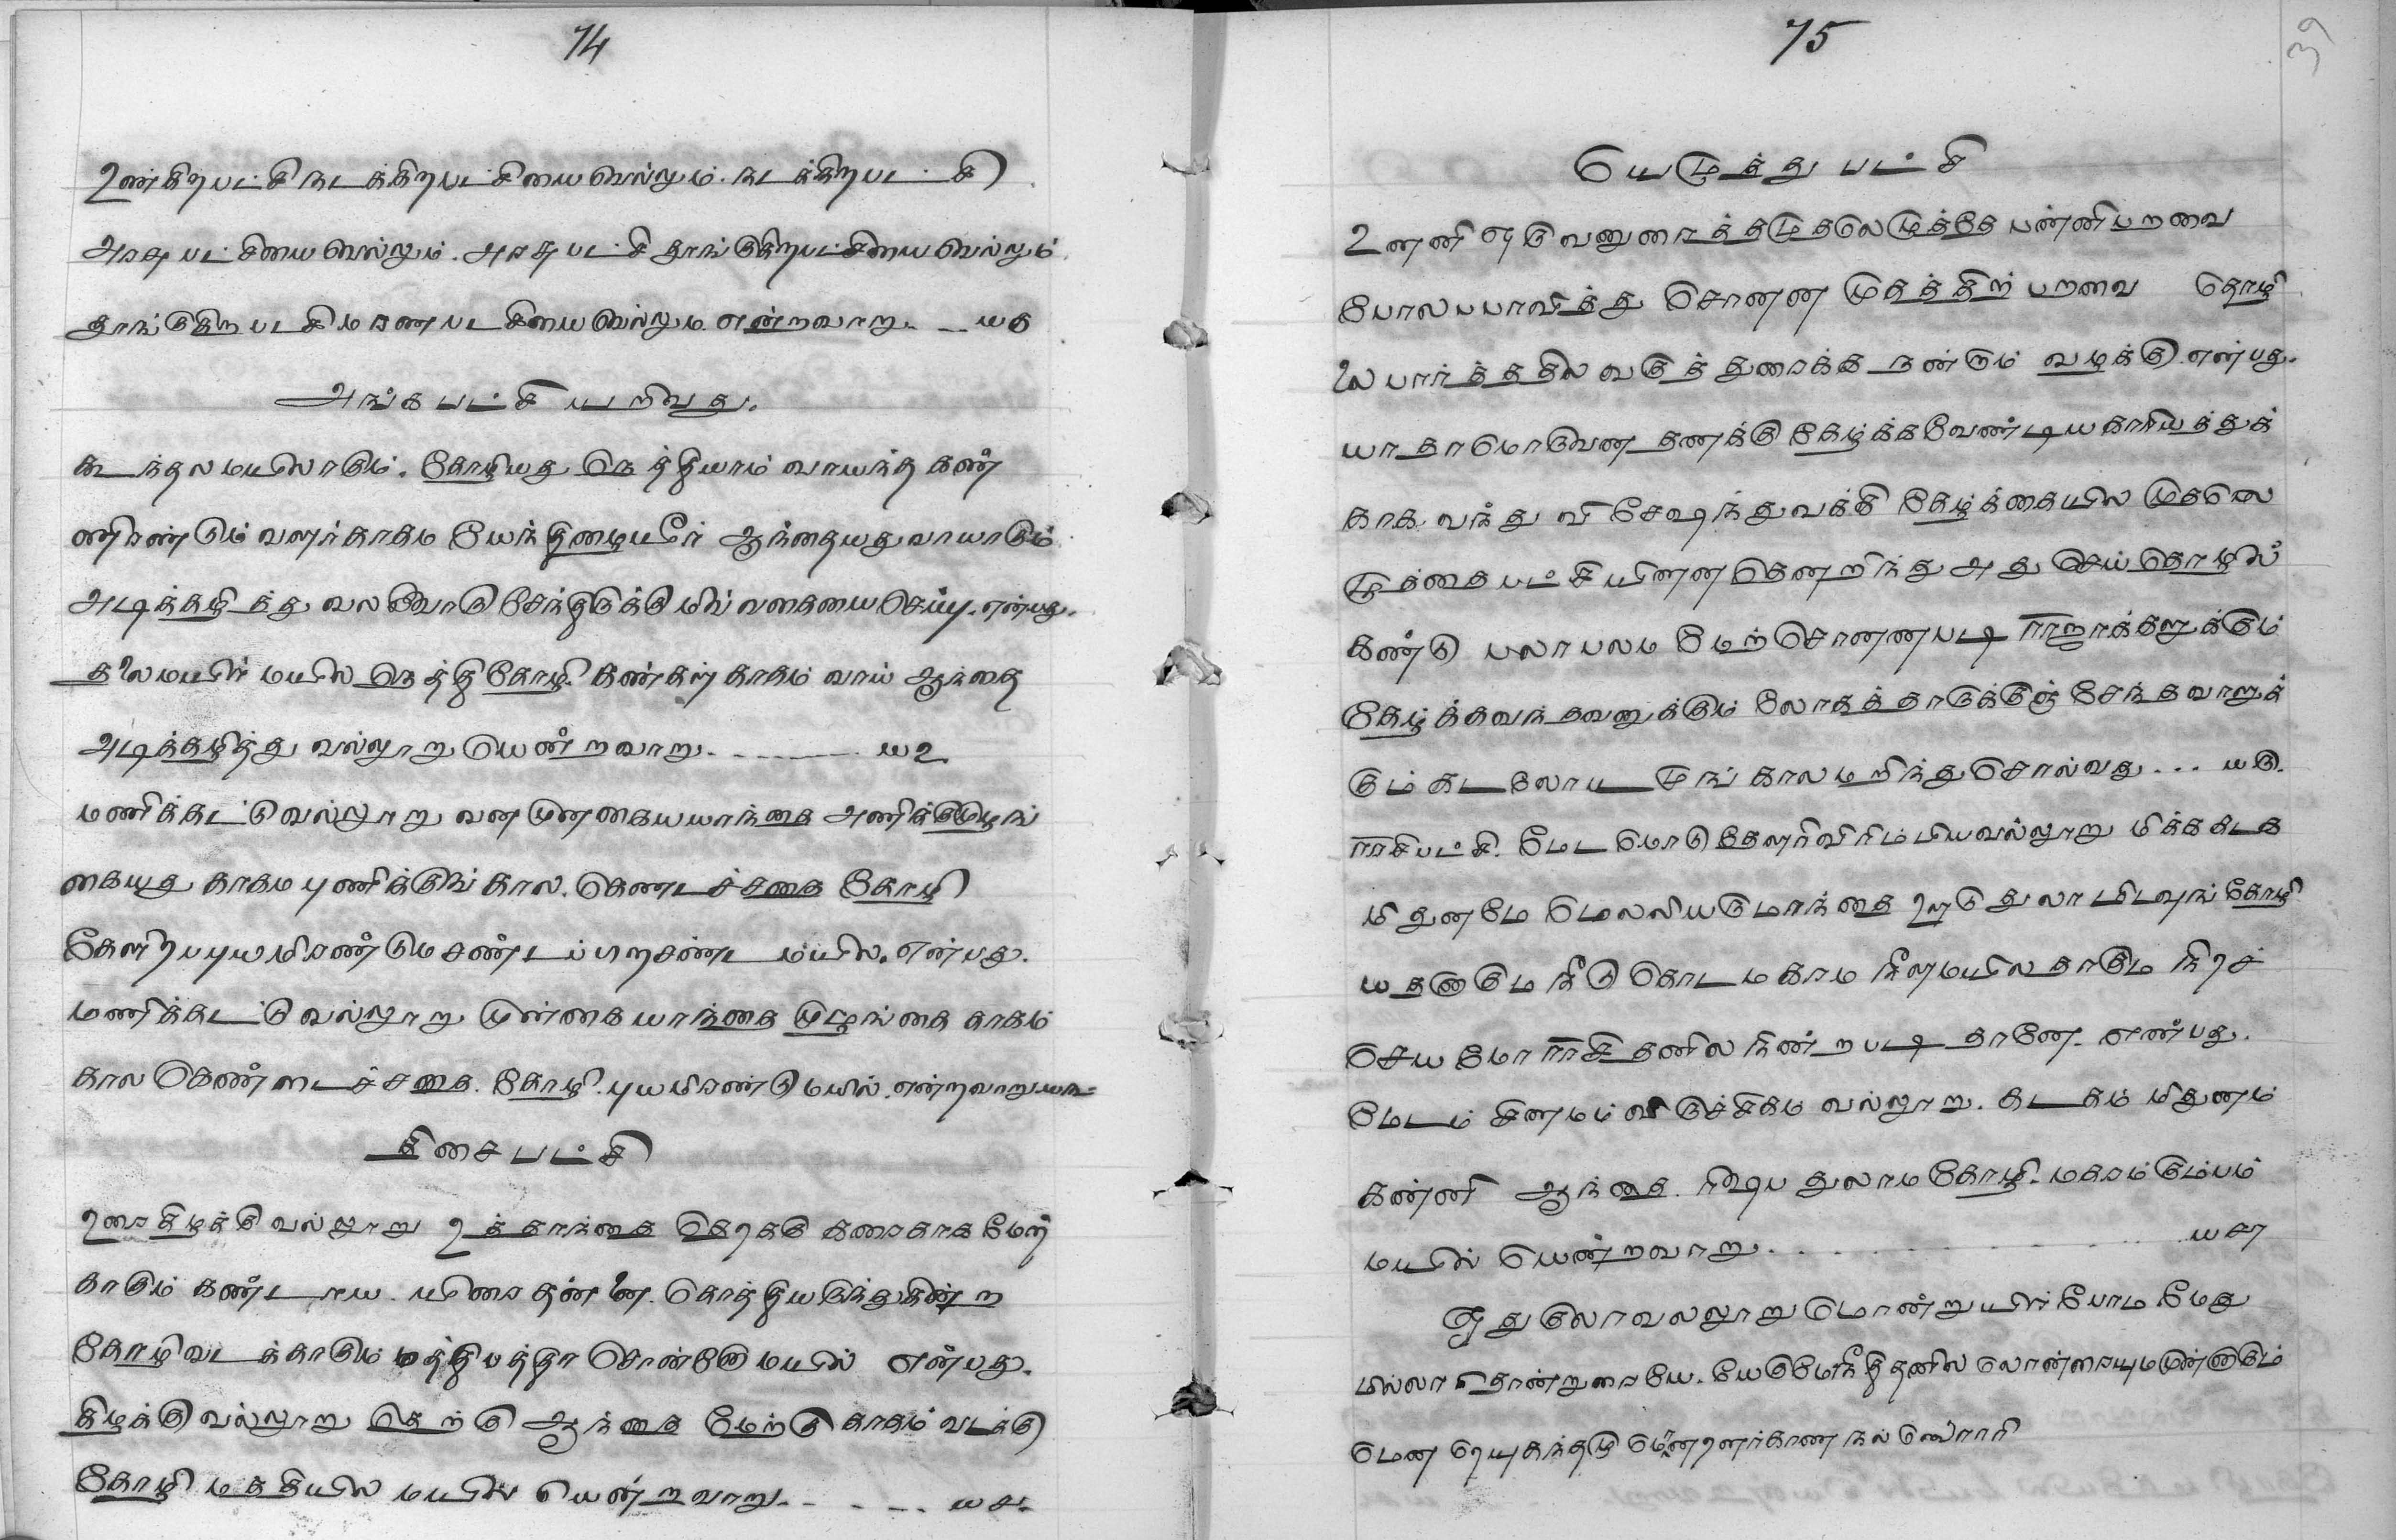 74
உண்கிறபட்சி நடக்கிறபட்சியை வெல்லும். நடக்கிறபட்சி
அரசு பட்சியை வெல்லும். அரசு பட்சி தூங்குகிறபட்சியை வெல்லும்
தூங்குகிற படசி மரண படசியை வெல்லும எனறவாறு. ய௧
அங்க பட்சி யறிவது.
கூந்தல மயிலாகும். கோழியது நெத்தியாம் வாயந்த கண்
ணிரண்டும் வளர்காகம யேந்திழையீர் ஆந்தையது வாயாகும்
அடிக்கழுத்து வலலூறு சேந்திருக்கு மிவ் வகையை செப்பு. என்பது.
தலைமயிர் மயில நெத்தி கோழி. கண்கள் காகம் வாய் ஆந்தை
அடிக்கழித்து வல்லூறு யென்றவாறு. ய௨
மணிக்கட்டு வல்லூறு வன முனகையயாந்தை அணிக்குமுழங்
கையது காகம புணிக்குங் கால. கெணடச்சதை கோழி
கேளிற புயமிரண்டும சண்டப்பிறசண்ட மயில. என்பது.
மணிக்கட்டு வல்லூறு முன்கை யாந்தை முழங்கை காகம்
கால கெண்டைச்சதை. கோழி. புயமிரண்டு மயில். என்றவாறு ய௩
திசை பட்சி
உரை கிழக்கு வல்லூறு உத்தராந்தை தெறகு கரைகாக மேற்
காகும் கண்டாய. யிரை தன்னை. கொத்தியருந்துகின்ற
கோழி வடக்காகும் மத்திபத்தி சொன்னே மயில் என்பது.
கிழக்கு வல்லூறு தெற்கு ஆந்தை மேற்கு காகம் வடக்கு
கோழி மததியில மயில் யென்றவாறு. ய௪.
75
யெழுத்து பட்சி
உனனி ஒருவனுரைத்தமுதலெழுத்தே பண்ணி பறவை
போலபபாவித்து சொனன முதத்திற் பறவை தொழி
லை பார்த்ததில வகுத்துரைக்க நண்கும் வழக்கு. என்பது.
யாதாமொருவன தனக்கு கேழ்க்கவேண்டிய காரியத்துக்
காக வந்து வி சேஷிந்துவக்கி கேழ்க்கையில முதலெ
ழுத்தை பட்சி யினன தெனறிந்து அது செய்தொழில்
கண்டு பலாபலம மேற்சொனனபடி ராறாக்களுக்கும்
கேழ்க்கவந்தவனுக்கும் லோகத்தாருக்குஞ் சேந்தவாளுக்
கும் கடலோயமுங் காலமறிந்து சொல்வது... ய௫.
ராசிபட்சி. மேடமொடு தேளரிவிரிம்பியவல்லூறு மிக்க கடக
மிதுனமே மெலலியருமாந்தை ஏறு துலா மிடவுங் கோழி
யதனாகும நீடு கொடமகாம நீளமயில தாகும நிரச்
செய மோ ராசி தனில நின்றபடி தானே. எண்பது.
மேடம் சினமம் விருச்சிகம வல்லூறு. கடகம் மிதுனம்
கண்னி ஆந்தை. ரிஷிப துலாம கோழி. மகரம் கும்பம்
மயில் யென்றவாறு. ய௬
மில்லா தொன்றுரையே.